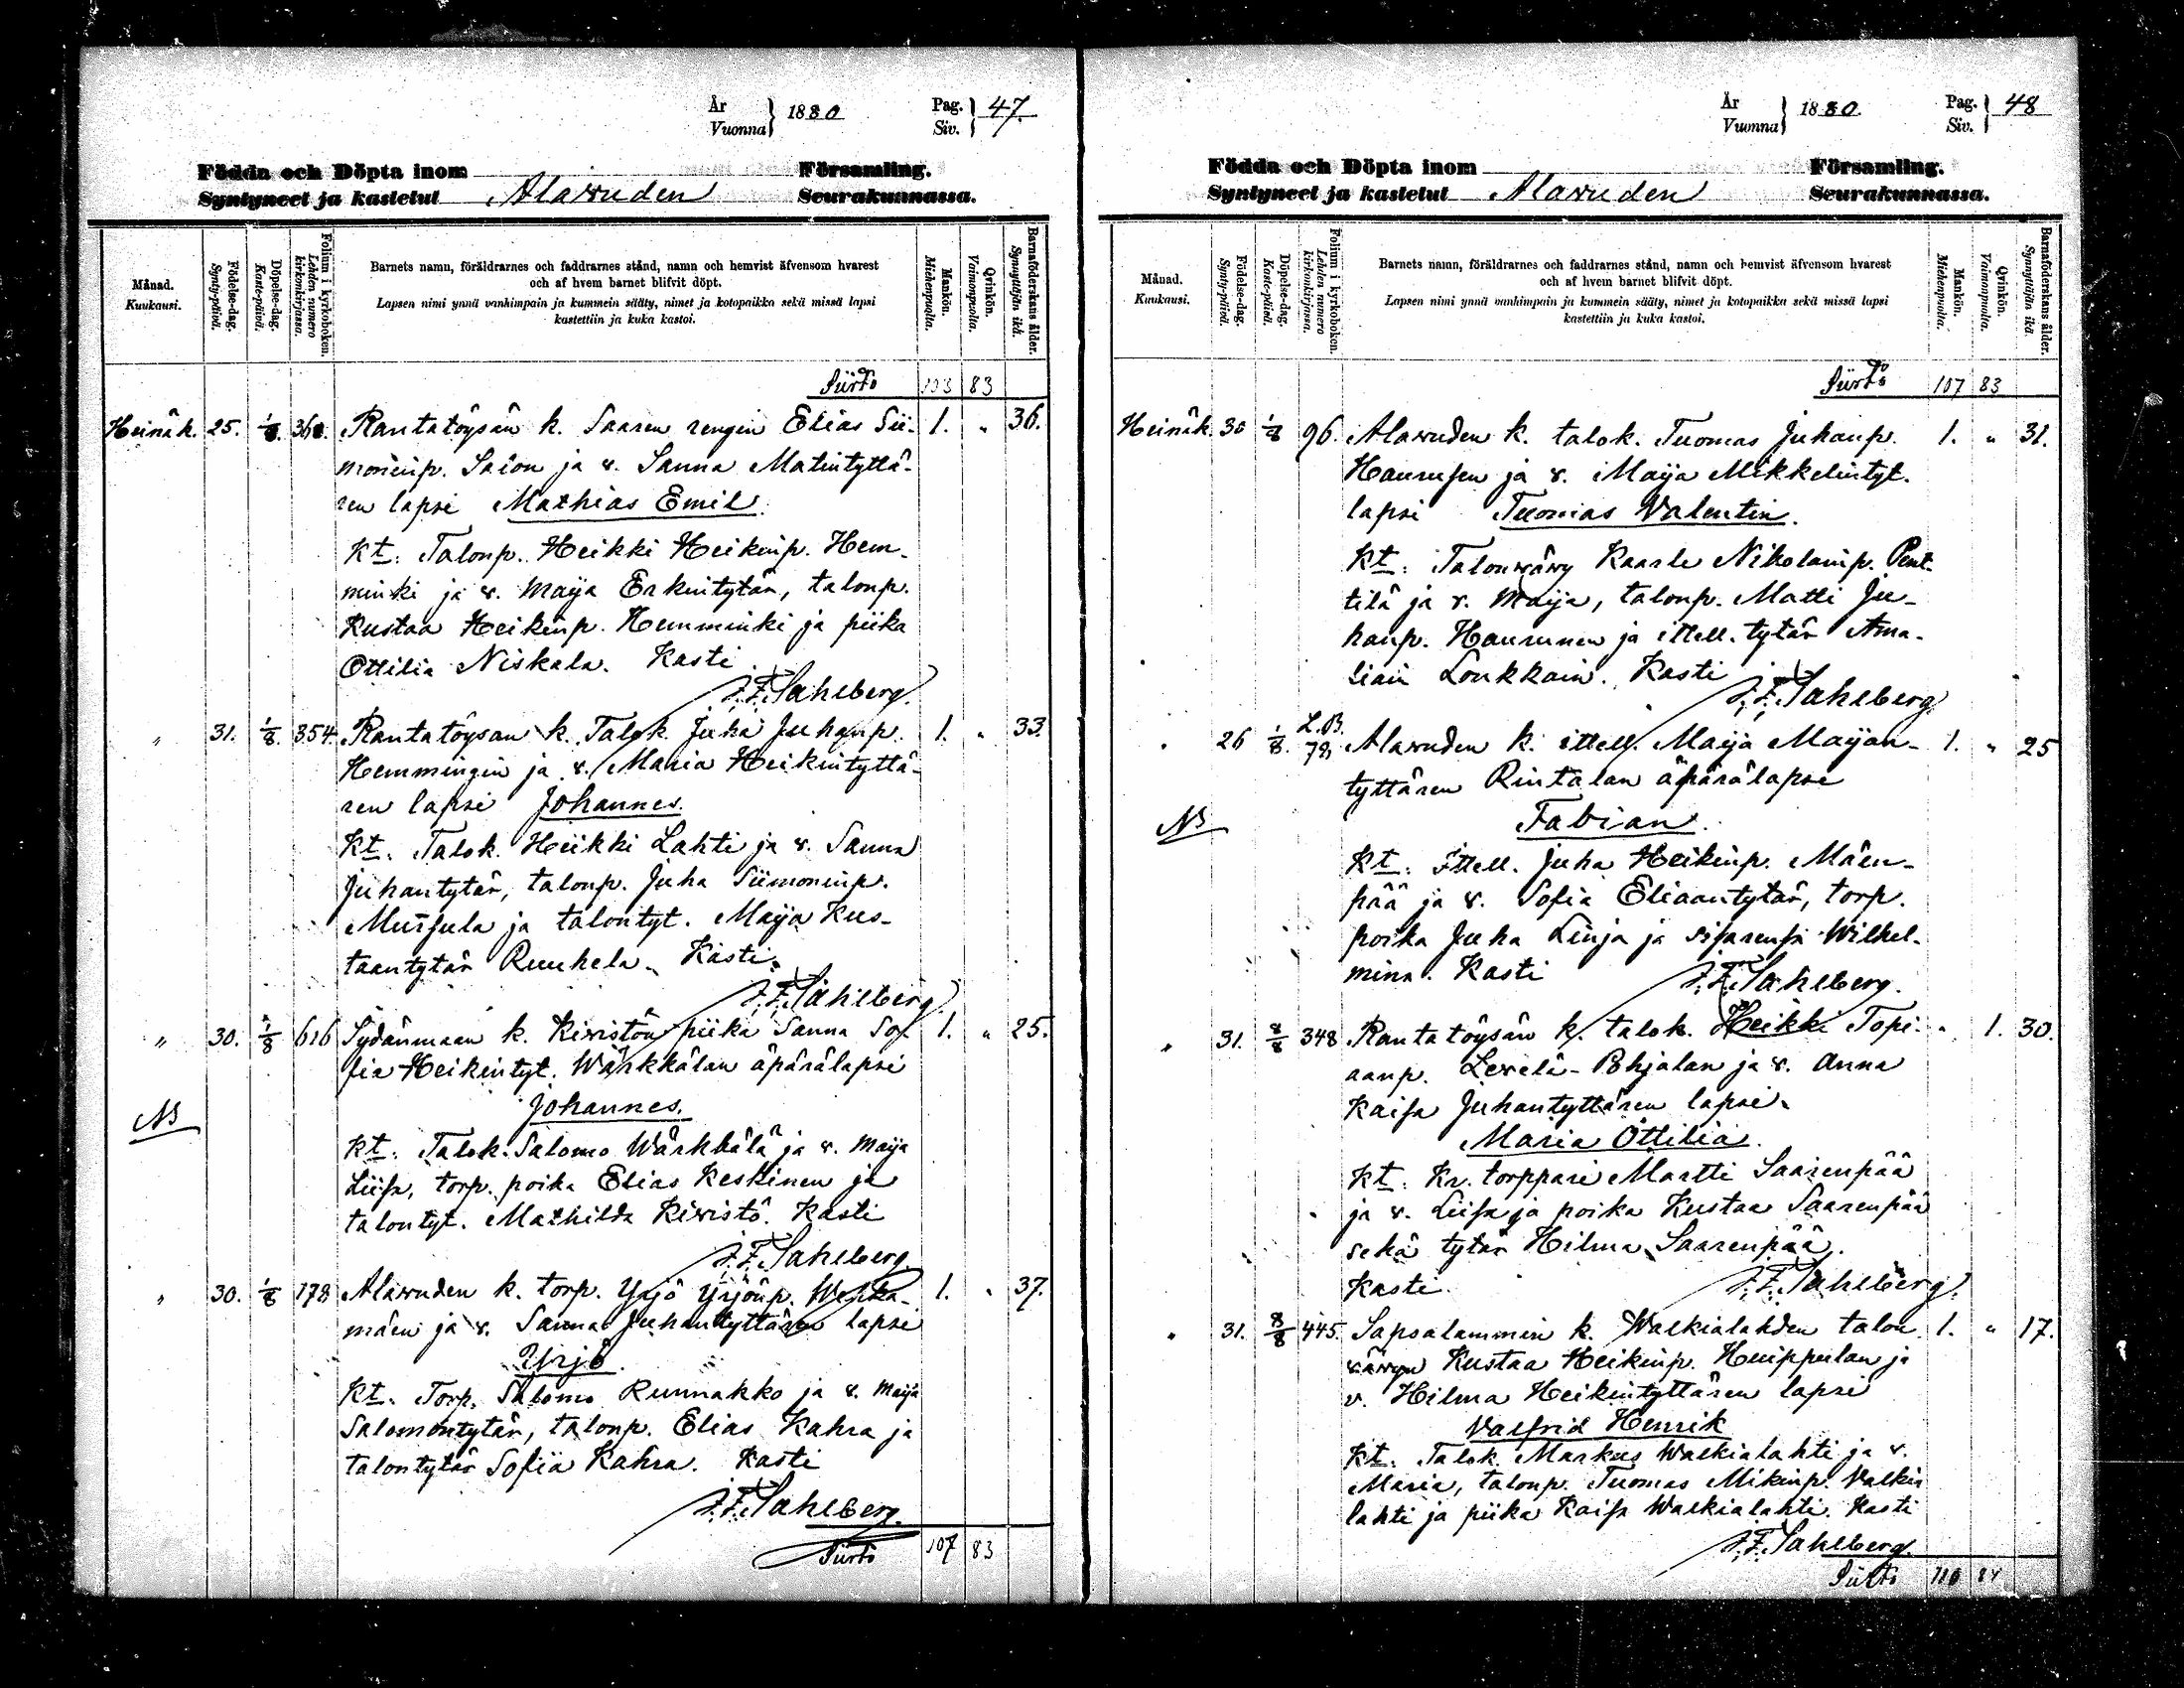 År
Vuonna } 1880 Pag.
Siv. } 47.
Födda och Döpta inom Församling.
Syntyneet ja kastetut Alavuden Seurakunnassa.
Månad.
Kuukausi.
Födelse-dag.
Synty-päivä.
Döpelse-dag.
Kaste-päivä.
Folium i kyrkoboken.
Lehden numero
kirkonkirjassa.
Barnets namn, föräldrarnes och faddrarnes stånd, namn och hemvist äfvensom hvarest
och af hvem barnet blifvit döpt.
Lapsen nimi ynnä vanhimpain ja kummein sääty, nimet ja kotopaikka sekä missä lapsi
kastettiin ja kuka kastoi.
Mankön.
Miehenpuolta.
Qvinkön.
Vaimonpuolta.
Barnaföderskans ålder.
Synnyttäjän ikä.
Siirto 103 83
Heinäk. 25. 1/8. 360. Rantatöysän k. Saaren rengin Elias Sii- 1. " 36.
moninp. Saion ja v. Sanna Matintyttä-
ren lapsi Mathias Emil.
Kt: Talonp. Heikki Heikinp. Hem-
minki ja v. Maija Erkintytär, talonp.
Kustaa Heikinp. Hemminki ja piika
Ottilia Niskala. Kasti
J. F. Sahlberg.
" 31. 1/8. 354. Rantatöysän k. Talok. Juha Juhanp. 1. " 33.
Hemmingin ja v. Maria Heikintyttä-
ren lapsi Johannes.
Kt: Talok. Heikki Lahti ja v. Sanna
Juhantytär, talonp. Juha Siimoninp.
ja talontyt. Maija Kus-
taantytär Ruuhela. Kasti
J. F. Sahlberg.
" 30. 1/8 616 Sydänmaan k. Kiviston piika Sanna So- 1. " 25.
fia Heikintyt. Wärkkälän äpärälapsi
NB Johannes.
Kt: Talok. Salomo Wärkkälä ja v. Maija
Liisa, torp. poika Elias Keskinen ja
talontyt. Mathilda Kivistö. Kasti
J. F. Sahlberg.
" 30. 1/8 178 Alavuden k. torp. Yrjö Yrjönp. 1. " 37.
mäen ja v. Sanna Juhantyttären lapsi
Yrjö.
Kt: Torp. Salomo Runnakko ja v. Maija
Salomontytär, talonp. Elias Kahra ja
talontytär Sofia Kahra. Kasti
J. F. Sahlberg.
Siirto 107 83
År
Vuonna } 1880 Pag.
Siv. } 48
Födda och Döpta inom Församling.
Syntyneet ja kastetut Alavuden Seurakunnassa.
Månad.
Kuukausi.
Födelse-dag.
Synty-päivä.
Döpelse-dag.
Kaste-päivä.
Folium i kyrkoboken.
Lehden numero
kirkonkirjassa.
Barnets namn, föräldrarnes och faddrarnes stånd, namn och hemvist äfvensom hvarest
och af hvem barnet blifvit döpt.
Lapsen nimi ynnä vanhimpain ja kummein sääty, nimet ja kotopaikka sekä missä lapsi
kastettiin ja kuka kastoi.
Mankön.
Miehenpuolta.
Qvinkön.
Vaimonpuolta.
Barnaföderskans ålder.
Synnyttäjän ikä.
Siirto 107 83
Heinäk. 30 1/8 96. Alavuden k. talok. Tuomas Juhanp. 1. " 31.
ja v. Maija Mikkelintyt.
lapsi Tuomas Valentin.
Kt: Talonvävy Kaarle Nikolainp. Pent-
tilä ja v. Maija, talonp. Matti Ju-
hanp. ja ittell. tytär Ama-
lian Loukkain. Kasti
J. F. Sahlberg.
" 26 1/8. L.B. 78, Alavuden k. ittell. Maija Maijan- 1. " 25
tyttären Rintalan äpärälapsi
NB Fabian.
Kt: Ittell. Juha Heikinp. Mäen-
pää ja v. Sofia Eliaantytär, torp.
poika Juha Linja ja sisarensa Wilhel-
mina. Kasti J. F. Sahlberg.
" 31. 8/8 348 Rantatöysän k. talok. Heikki Topi- " 1. 30.
aanp. Levelä-Pohjalan ja v. Anna
Kaisa Juhantyttären lapsi
Maria Ottilia.
Kt: Kr. torppari Martti Saarenpää
ja v. Liisa ja poika Kustaa Saarenpää
sekä tytär Hilma Saarenpää.
Kasti. J. F. Sahlberg.
" 31. 8/8 445. Sapsalammin k. Walkialahden talon 1. " 17.
vävyn Kustaa Heikinp. Huippulan ja
v. Hilma Heikintyttären lapsi
Valfrid Henrik
Kt: Talok. Markus Walkialahti ja v.
Maria, talonp. Tuomas Mikinp. Valkia
lahti ja piika Kaisa Walkialahti. Kasti
J. F. Sahlberg.
Siirto 110 84